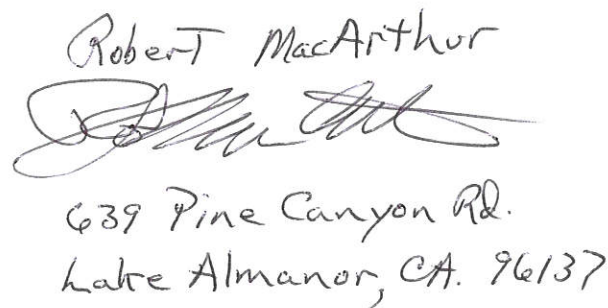 Robert MacArthur
639 Pine Canyon Rd.
Lake Almanor, CA. 96137